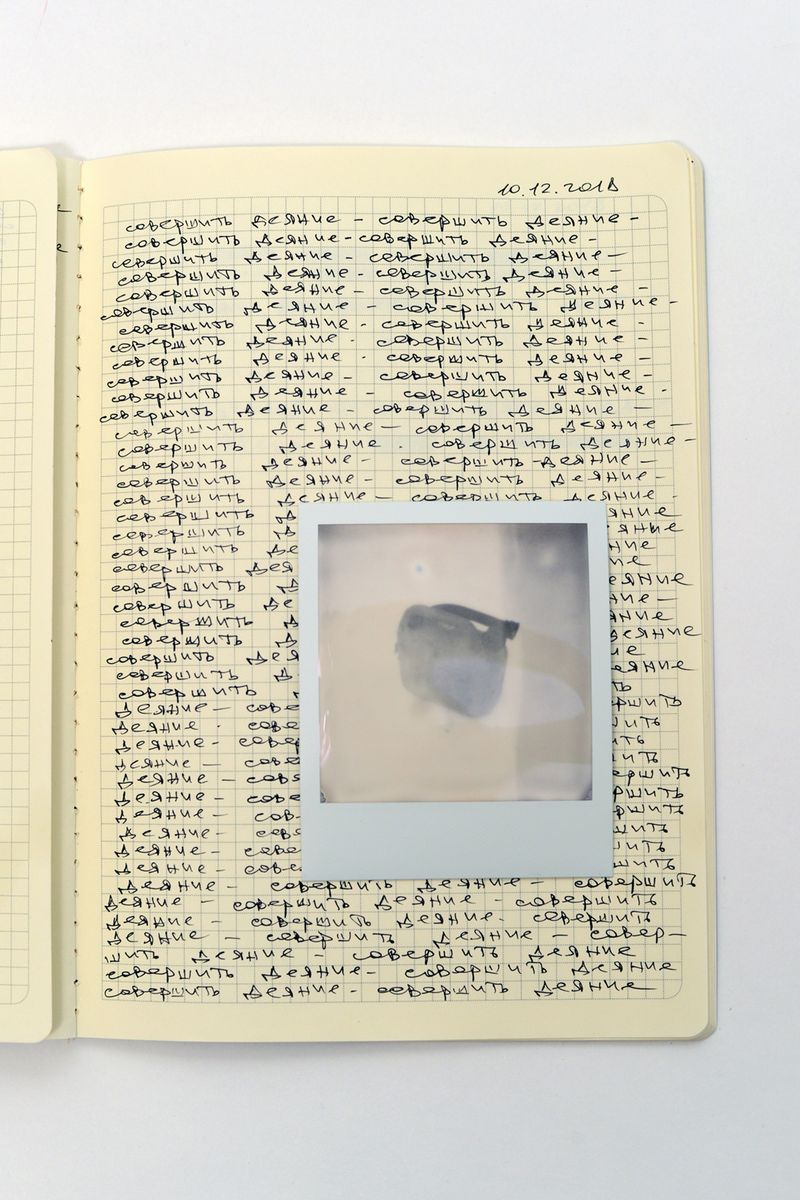 10.12.2018
совершить деяние – совершить деяние -
совершить деяние - совершить деяние -
совершить деяние - совершить деяние —
совершить деяние - совершить деяние —
совершить деяние - совершить деяние —
совершить деяние – совершить деяние -
совершить деяние - совершить деяние -
совершить деяние - совершить деяние –
совершить деяние - совершить деяние –
совершить деяние – совершить деяние –
совершить деяние – совершить деяние -
совершить деяние - совершить деяние —
совершить деяние — совершить деяние —
совершить деяние . совершить деяние -
совершить деяние - совершить - деяние —
совершить деяние - совершить деяние -
совершить деяние — совершить деяние -
совершить дея яние
совершить д яние
совершить де ние
совершить дея ние
совершить д деяние
совершить де ние –
совершить д яние
совершить д деяние
совершить дея ие
совершить д деяние
совершить ть
деяние — сове ршить
деяние . сове шить
деяние - сове ить
деяние — сове ить
деяние — сове ершить
деяние - сове ршить
деяние - сов ршить
деяние - сове шить
деяние - сове ить
деяние - сове шить
деяние - совершить деяние – совершить
деяние - совершить деяние - совершить
деяние - совершить деяние - совершить
деяние – совершить деяние – совер-
шить деяние - совершить деяние
совершить деяние - совершить деяние
совершить деяние - совершить деяние